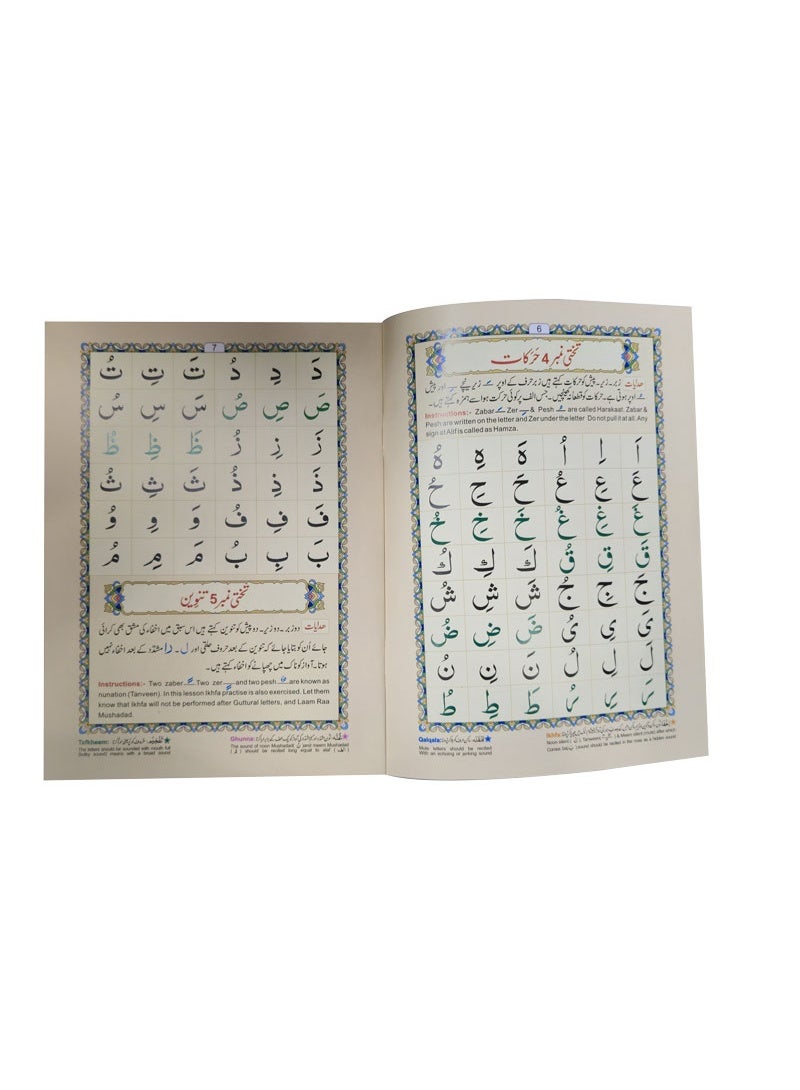 6
تختی نمبر 4 حَرَکات
ھدایات زبر۔ زیر۔ پیش کو حرکات کہتے ہیں زبر حرف کے اوپر َ زیر نیچے ِ اور پیش
ُ اوپر ہوتی ہے۔ حرکات کو قطعاً نہ کھینچیں۔ جس الف پر کوئی حرکت ہو اسے ہمزہ کہتے ہیں۔
Instructions:- Zabar َ Zer ِ & Pesh ُ are called Harakaat. Zabar &
Pesh are written on the letter and Zer under the letter Do not pull it at all. Any
sign at Alif is called as Hamza.
اَ اِ اُ هَ هِ هُ
عَ عِ عُ حَ حِ حُ
غَ غِ غُ خَ خِ خُ
قَ قِ قُ كَ كِ كُ
جَ جِ جُ شَ شِ شُ
یَ یِ یُ ضَ ضِ ضُ
لَ لِ لُ نَ نِ نُ
رَ رِ رُ طَ طِ طُ
Ikhfa:
Noon silent Tanween & Meem silent after which
should be recited in the nose as a hidden sound
Qalqala:
Mute letters should be recited
With an echoing or jerking sound
7
دَ دِ دُ تَ تِ تُ
صَ صِ صُ سَ سِ سُ
زَ زِ زُ ظَ ظِ ظُ
ذَ ذِ ذُ ثَ ثِ ثُ
فَ فِ فُ وَ وِ وُ
بَ بِ بُ مَ مِ مُ
تختی نمبر 5 تنوین
ھدایات دو زبر۔ دو زیر۔ دو پیش کو تنوین کہتے ہیں اس سبق میں اخفاء کی مشق بھی کرائی
جائے اُن کو بتایا جائے کہ تنوین کے بعد حروف حلقی اور ل۔ را مشدّد کے بعد اخفاء نہیں
ہوتا۔ آواز کو ناک میں چھپانے کو اخفاء کہتے ہیں۔
Instructions:- Two zaber ً Two zer ٍ and two pesh ٌ are known as
nunation (Tanveen). In this lesson Ikhfa practise is also exercised. Let them
know that Ikhfa will not be performed after Guttural letters, and Laam Raa
Mushadad.
Ghunna:
The sound of noon Mushadad( نّ )and meem Mushadad
( مّ ) should be recited long equal to alaf ( الف )
Tafkheem:
The letters should be sounded with mouth full
(bulky sound) means with a broad sound